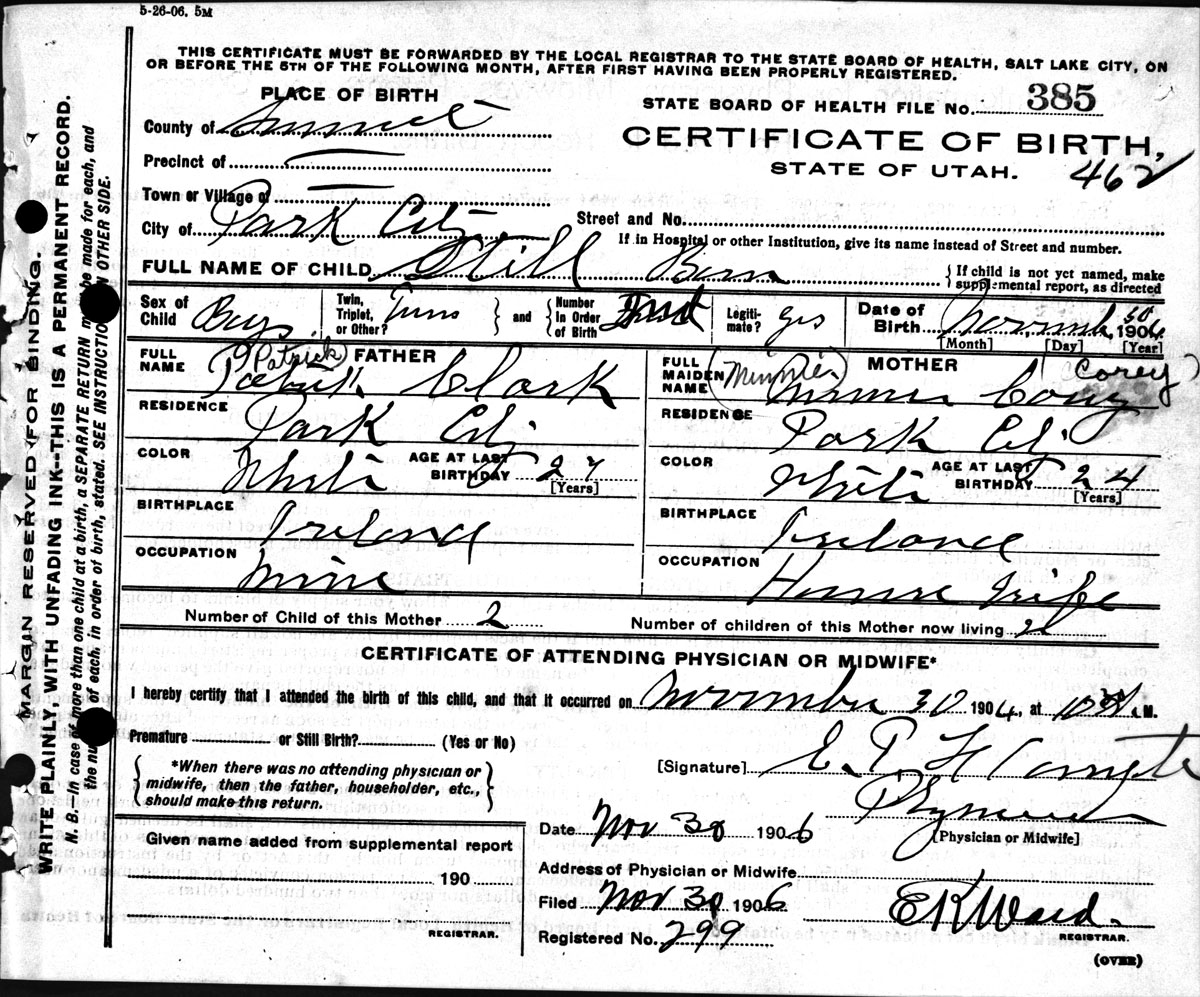 5-26-06. 5M
THIS CERTIFICATE MUST BE FORWARDED BY THE LOCAL REGISTRAR TO THE STATE BOARD OF HEALTH, SALT LAKE CITY, ON
OR BEFORE THE 5TH OF THE FOLLOWING MONTH, AFTER FIRST HAVING BEEN PROPERLY REGISTERED.
PLACE OF BIRTH
STATE BOARD OF HEALTH FILE No. 385
County of Summit
CERTIFICATE OF BIRTH,
Precinct of
STATE OF UTAH. 462
Town or Village of
City of Park City
Street and No.
If in Hospital or other Institution, give its name instead of Street and number.
FULL NAME OF CHILD Still Born
{ If child is not yet named, make
supplemental report, as directed
Sex of Child Boys
Twin, Triplet, or Other? Twins
} and {
Number In Order of Birth First
Legiti-mate? Yes
Date of Birth November 30 1906
[Month] [Day] [Year]
FULL NAME (Patrick) FATHER
Patrick Clark
FULL MAIDEN NAME (Minnie) MOTHER (Corey)
Minnie Corey
RESIDENCE Park City
RESIDENCE Park City
COLOR White AGE AT LAST BIRTHDAY 27
[Years]
COLOR White AGE AT LAST BIRTHDAY 24
[Years]
BIRTHPLACE Ireland
BIRTHPLACE Ireland
OCCUPATION Mine
OCCUPATION House Wife
Number of Child of this Mother 2
Number of children of this Mother now living 2
CERTIFICATE OF ATTENDING PHYSICIAN OR MIDWIFE*
I hereby certify that I attended the birth of this child, and that it occurred on November 30 1906, at 10 A. M.
Premature or Still Birth? (Yes or No)
{ *When there was no attending physician or
midwife, then the father, householder, etc.,
should make this return. }
[Signature] E. P.
[Physician or Midwife]
Date Nov 30 1906
Given name added from supplemental report
190
REGISTRAR.
Address of Physician or Midwife
Filed Nov 30 1906
E K Ward.
REGISTRAR.
Registered No. 299
(OVER)
MARGIN RESERVED FOR BINDING.
WRITE PLAINLY, WITH UNFADING INK--THIS IS A PERMANENT RECORD.
N. B.--In case of more than one child at a birth, a SEPARATE RETURN must be made for each, and
the number of each, in order of birth, stated. SEE INSTRUCTIONS ON OTHER SIDE.